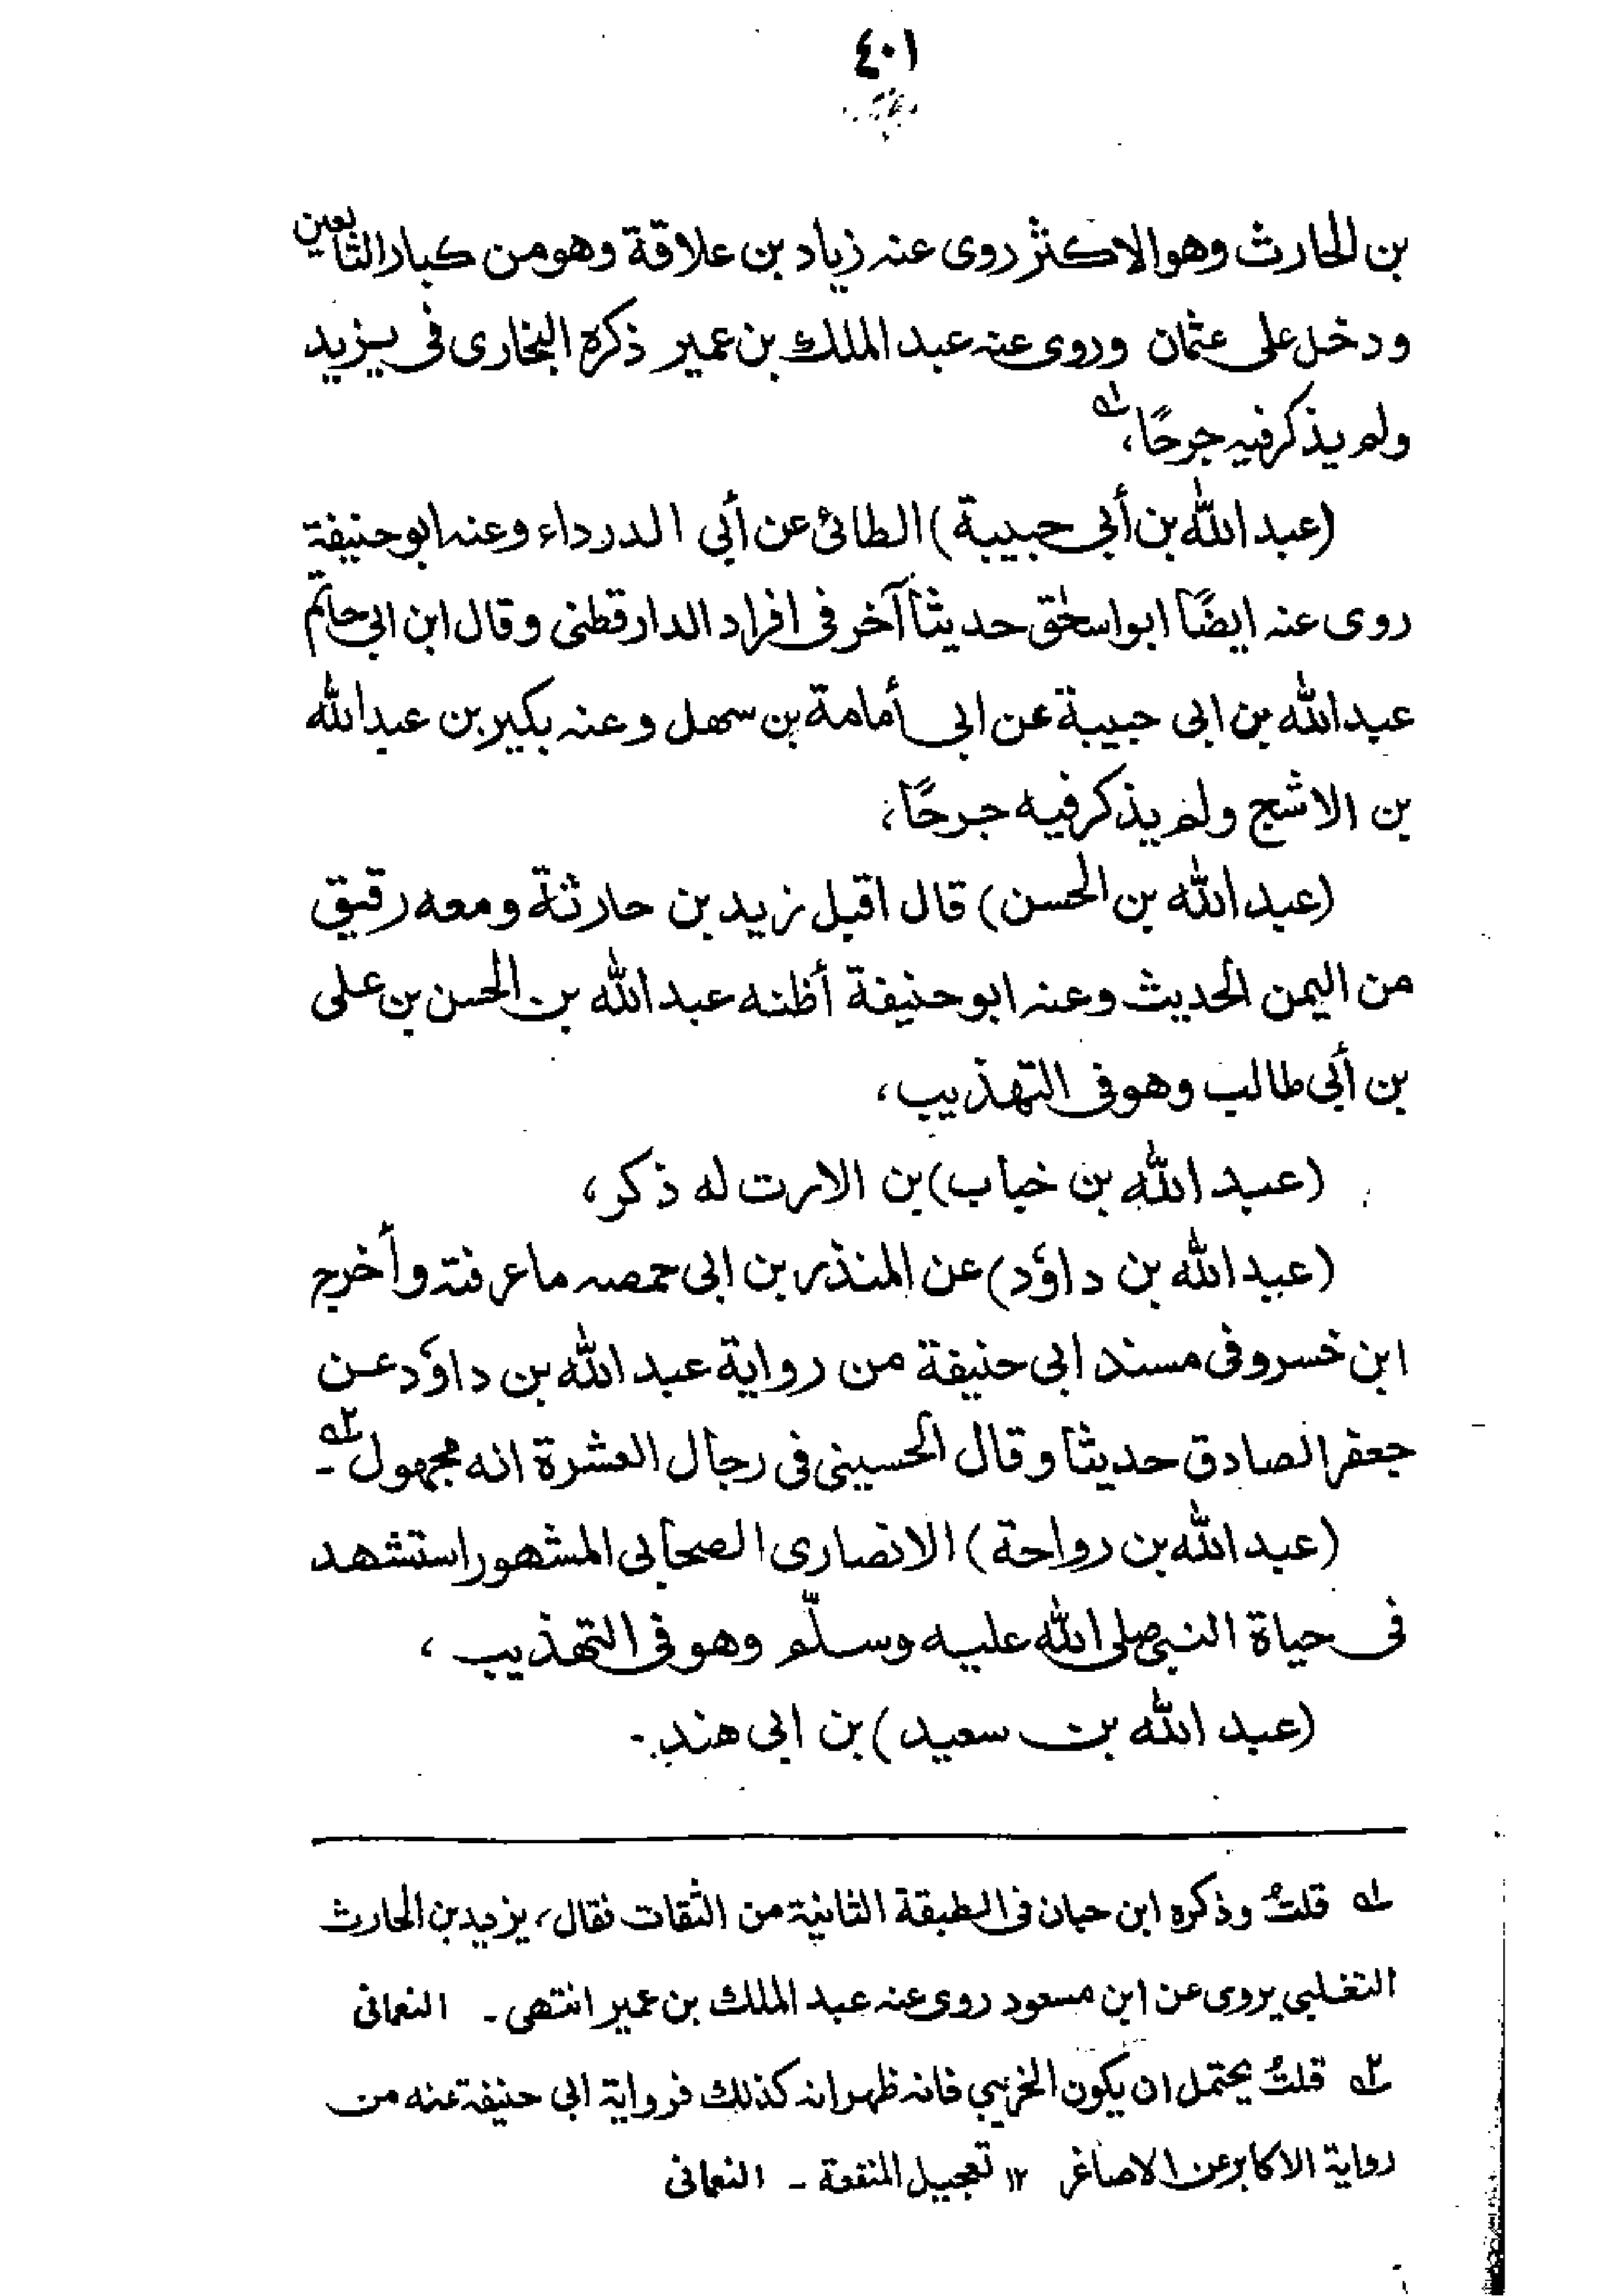 ٤٠١
بن الحارث وهو الاكثر روى عنه زياد بن علاقة وهو من كبار التابعين
ودخل على عثمان وروى عنه عبد الملك بن عمير ذكره البخارى فى يزيد
ولم يذكر فيه جرحًا،ﻪ١
(عبد الله بن أبي حبيبة) الطائى عن أبي الدرداء وعنه ابو حنيفة
روى عنه ايضًا ابو اسحٰق حديثا آخر فى افراد الدارقطنى وقال ابن ابى حاتم
عبد الله بن ابى حبيبة عن ابى أمامة بن سهل وعنه بكير بن عبد الله
بن الاشج ولم يذكر فيه جرحًا،
(عبد الله بن الحسن) قال اقبل زيد بن حارثة ومعه رقيق
من اليمن الحديث وعنه ابو حنيفة أظنه عبد الله بن الحسن بن على
بن أبى طالب وهو فى التهذيب،
(عبد الله بن خباب) بن الارت له ذكر،
(عبد الله بن داؤد) عن المنذر بن ابى حمصه ما عرفته وأخرج
ابن خسرو فى مسند ابى حنيفة من رواية عبد الله بن داؤد عن
جعفر الصادق حديثا وقال الحسينى فى رجال العشرة انه مجهول ﻪ٢ـ
(عبد الله بن رواحة) الانصارى الصحابى المشهور استشهد
فى حياة النبى صلى الله عليه وسلّم وهو فى التهذيب،
(عبد الله بن سعيد) بن ابى هند.-
ﻪ١ قلتُ وذكره ابن حبان فى الطبقة الثانية من الثقات فقال، يزيد بن الحارث
التغلبي يروى عن ابن مسعود روى عنه عبد الملك بن عمير انتهى ـ النعمانى
ﻪ٢ قلتُ يحتمل ان يكون الخريبي فانه ظهر انه كذلك فرواية ابى حنيفة عنه من
رواية الاكابر عن الاصاغر ١٢ تعجيل المنفعة ـ النعمانى